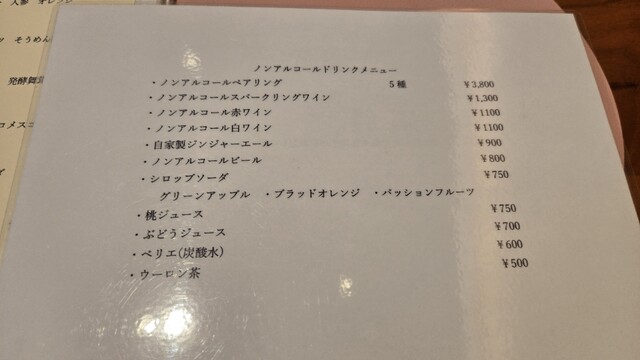 人参 オレンジ
そうめん
発酵舞茸
コメスコ
ノンアルコールドリンクメニュー
・ノンアルコールペアリング 5種 ￥3,800
・ノンアルコールスパークリングワイン ￥1,300
・ノンアルコール赤ワイン ￥1100
・ノンアルコール白ワイン ￥1100
・自家製ジンジャーエール ￥900
・ノンアルコールビール ￥800
・シロップソーダ ￥750
グリーンアップル ・ブラッドオレンジ ・パッションフルーツ
・桃ジュース ￥750
・ぶどうジュース ￥700
・ペリエ(炭酸水) ￥600
・ウーロン茶 ￥500